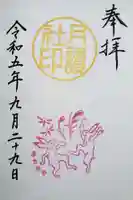 奉拝
月讀
社印
令和五年九月二十九日